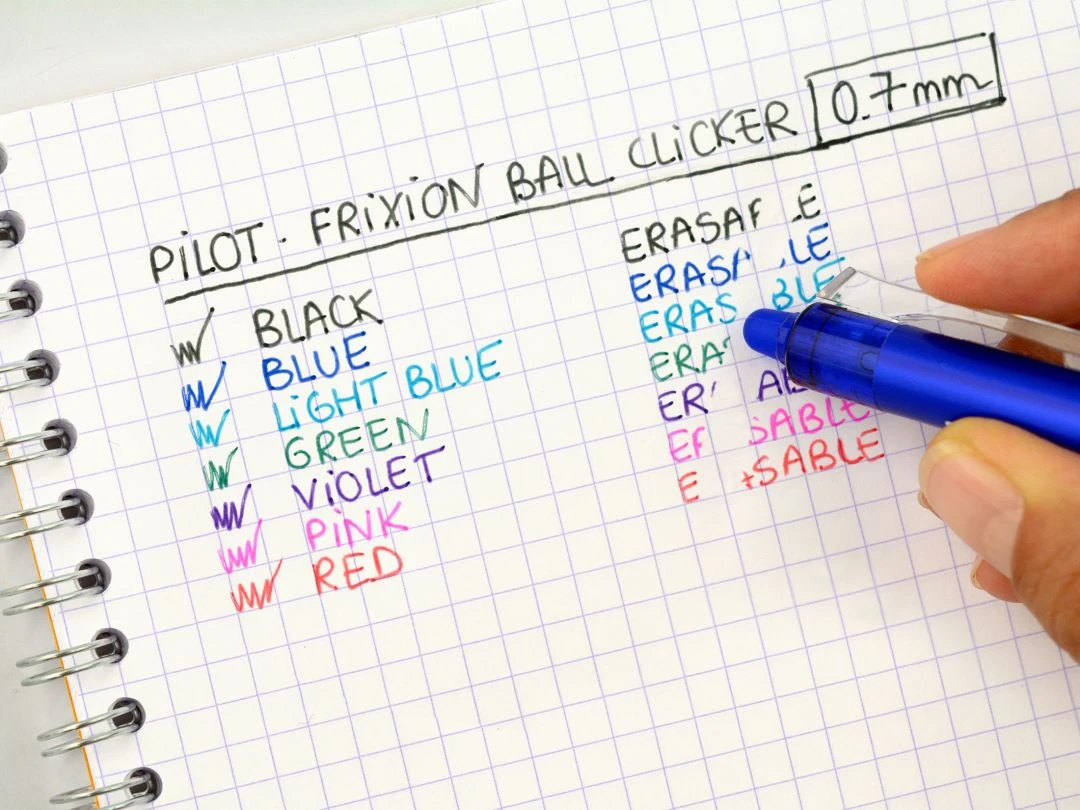 PiLOT. FRiXiON BALL CLiCKER 0.7mm
BLACK
BLUE
LiGHT BLUE
GREEN
ViOLET
PiNK
RED
ERASA LE
ERAS LE
ERAS BLE
ERA
ER A
E SABLE
E SABLE